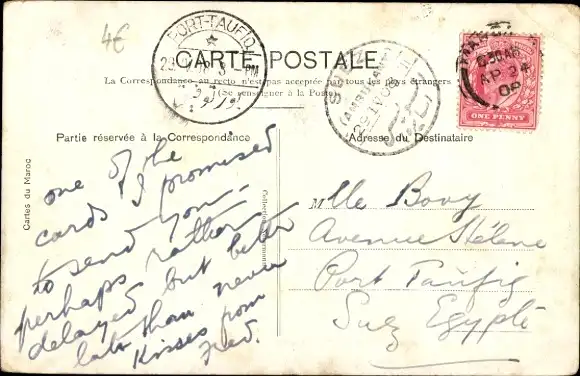 4€
PORT-TAUFIQ
CARTE POSTALE
La Correspondance au recto n'est pas acceptée par tous les pays étrangers
(Se renseigner à la Poste)
ONE PENNY
AP 24
08
Partie réservée à la Correspondance
Adresse du Destinataire
Cartes du Maroc
one of the
cards I promised
to send you
perhaps rather
delayed but better
late than never
Kisses from
Fred.
Mlle Bovy
Avenue Hélène
Port Taufiq
Suez Egypte